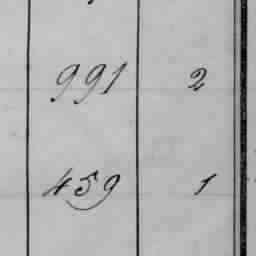 991 2
459 1